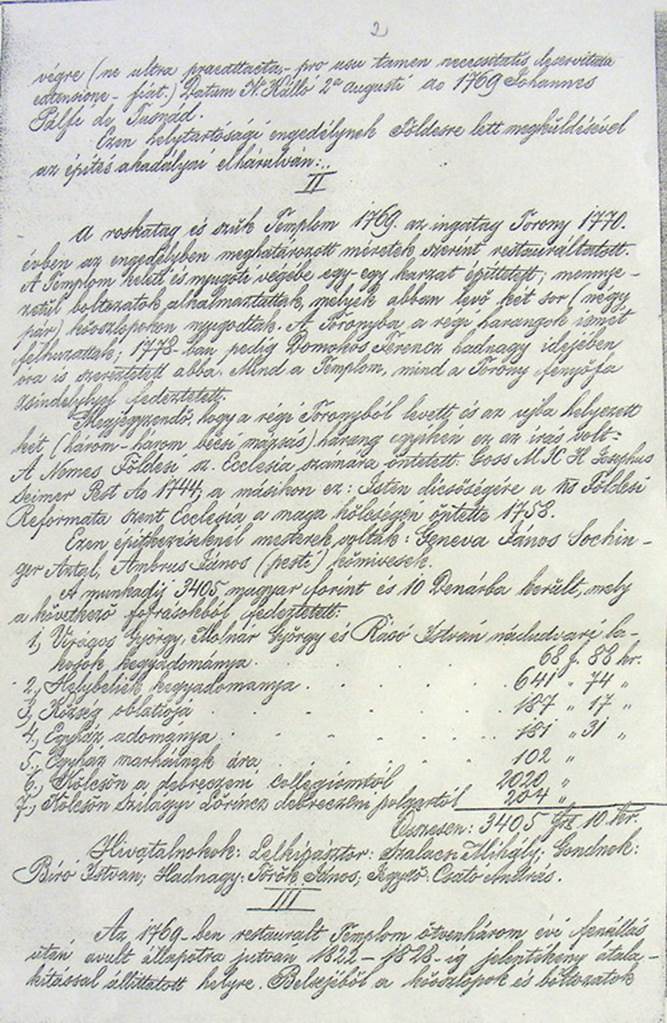 2
végre (ne ultra praeattacta - pro usu tamen necessitatis deservitura
extensione - fiat.) Datum N. Kálló 2a augusti ao 1769 Johannes
Pálfi de Tusnád.
Ezen helytartósági engedélynek Földesre lett megküldésével
az építés akadályai elhárulván:..
II
A roskatag és szűk Templom 1769. az ingatag Torony 1770.
évben az engedélyben meghatározott méretek szerént restauráltatott.
A Templom keleti és nyugoti végébe egy-egy karzat építtetett; mennye-
zetül boltozatok alkalmaztattak, melyek abban levő két sor (négy
pár) kőoszlopokon nyugodtak. A Toronyba a régi harangok ismét
felhuzattak; 1778-ban pedig Domokos Ferencz hadnagy idejében
óra is szereztetett abba. Mind a Templom, mind a Torony fenyőfa
zsindelylyel fedeztetett.
Megjegyzendő, hogy a régi Toronyból levett és az ujba helyezett
két (három-három bécsi mázsás) harang egyikén ez az írás volt:
A Nemes Földesi sz. Ecclesia számára öntetett: Goss M. X H Josephus
Seimer Pest Ao 1744; a másikon ez: Isten dicsőségére a Ns Földesi
Reformata szent Ecclesia a maga költségen öntette 1758.
Ezen építkezéseknél mesterek voltak: Geneva János Sochin-
ger Antal, Ambrus János (pesti) kőmivesek.
A munkadíj 3405 magyar forint és 10 Denárba került, mely
a következő forrásokból fedeztetett:
1, Virágos György, Molnár György és Rásó István nádudvari la-
kosok kegyadománya . 68 f. 88 kr.
2., Helybeliek kegyadománya . . . . 641 " 74 "
3, Község oblatiója . . . . 187 " 17 "
4., Egyház adománya . . . . 181 " 31 "
5., Egyház marháinak ára . . . . 102 "
6., Kölcsön a debreczeni collégiumtól 2020 "
7., Kölcsön Szilágyi Lőrincz debreczeni polgártól 204 "
Összesen: 3405 frt 10 kr.
Hivatalnokok: Lelkipásztor: Szalacsi Mihály; Gondnok:
Bíró István; Hadnagy: Török János; Jegyző: Csató András.
III
Az 1769-ben restaurált Templom ötvenhárom évi fenállás
után avult állapotra jutván 1822-1828-ig jelentékeny átala-
kítással állíttatott helyre. Belsejéből a kőoszlopok és boltozatok